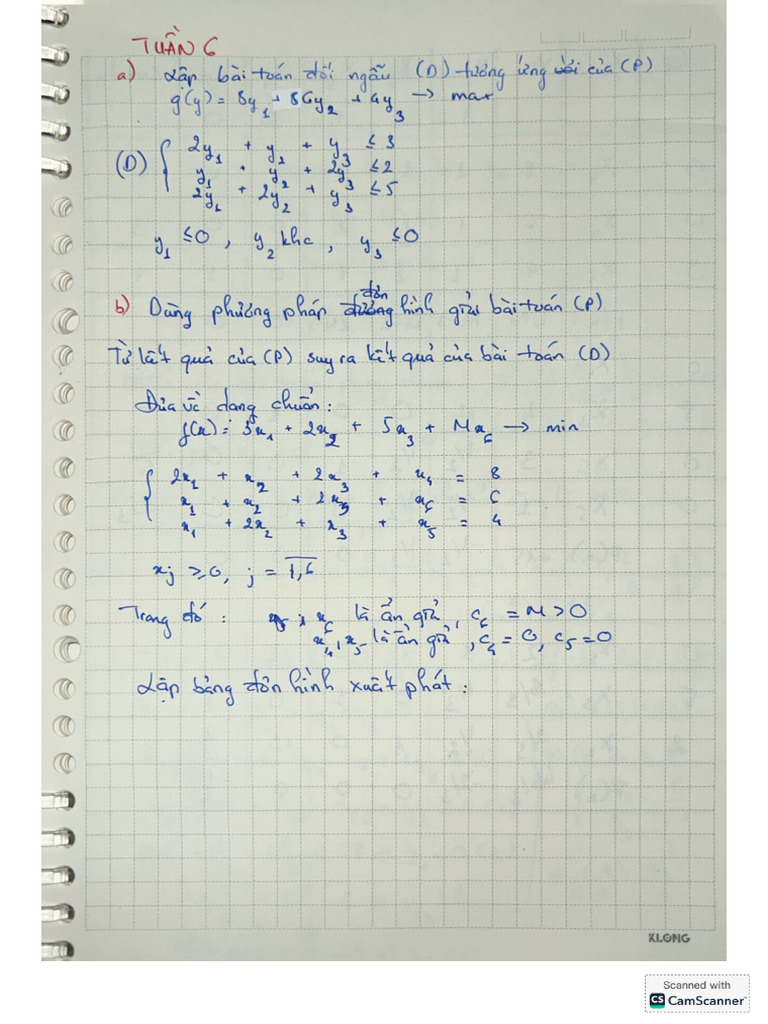 TUẦN 6
a) Lập bài toán đối ngẫu (D) tương ứng của (P)
g(y) = 8y₁ + 6y₂ + 4y₃ → max
(D) { 2y₁ + y₂ + y₃ ≤ 3
y₁ + y₂ + 2y₃ ≤ 2
2y₁ + 2y₂ + y₃ ≤ 5
y₁ ≤ 0, y₂ khc, y₃ ≤ 0
b) Dùng phương pháp đơn hình giải bài toán (P)
Từ kết quả của (P) suy ra kết quả của bài toán (D)
Đưa về dạng chuẩn:
f(x) = 3x₁ + 2x₂ + 5x₃ + Mx₆ → min
{ 2x₁ + x₂ + 2x₃ + x₄ = 8
x₁ + x₂ + 2x₃ + x₆ = 6
x₁ + 2x₂ + x₃ + x₅ = 4
xj ≥ 0, j = 1,6
Trong đó : x₆ là ẩn giả, c₆ = M > 0
x₄, x₅ là ẩn giả, c₄ = 0, c₅ = 0
Lập bảng đơn hình xuất phát:
KLONG
Scanned with
CS CamScanner